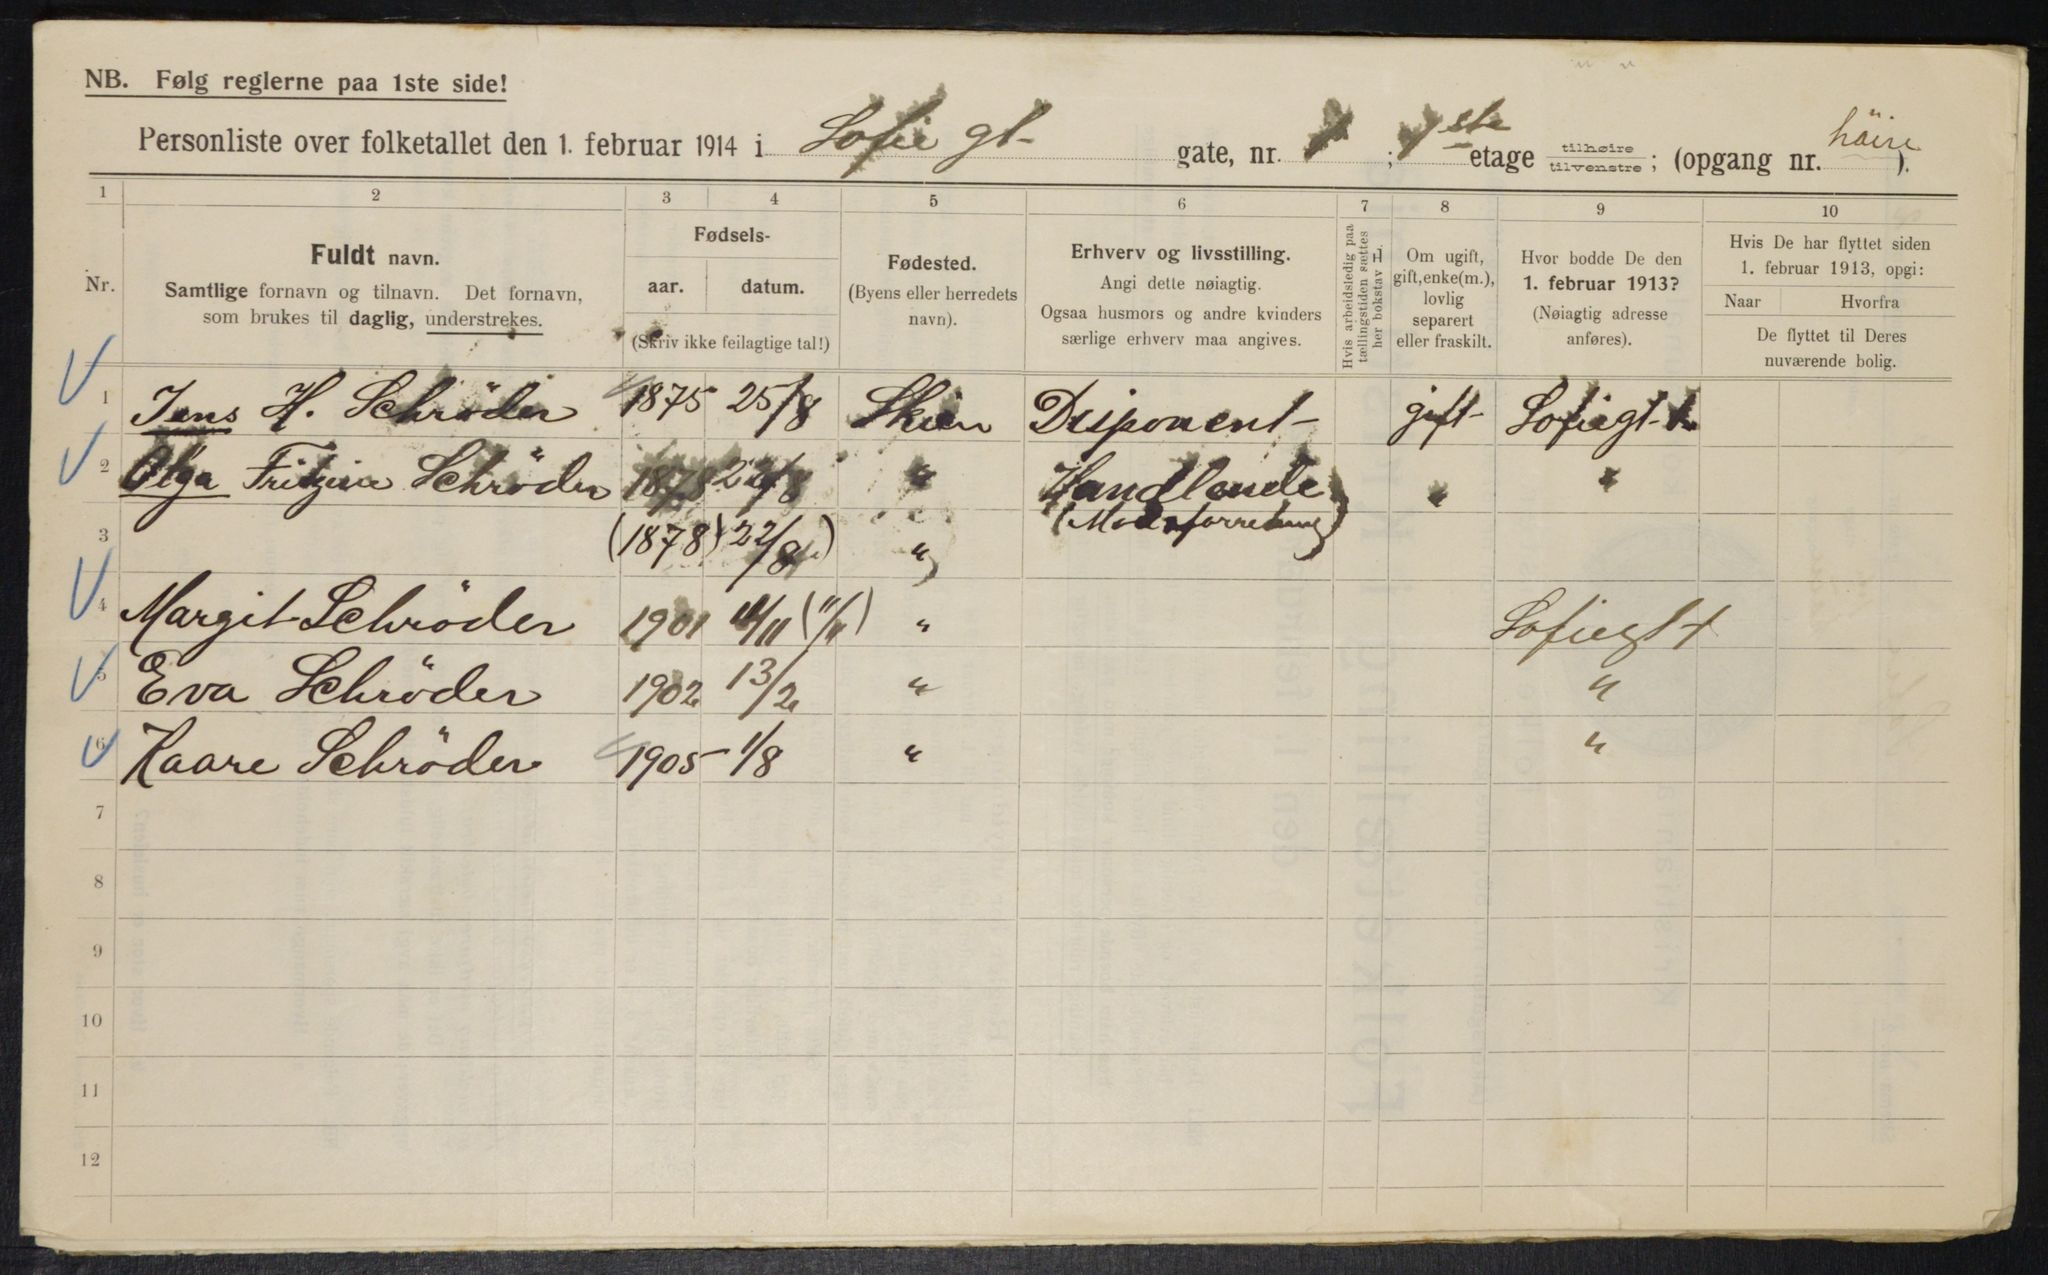 NB. Følg reglerne paa 1ste side!
Personliste over folketallet den 1. februar 1914 i Sofie gt- gate, nr. 1; 1ste etage tilhøire tilvenstre; (opgang nr. höire ).
1 2 3 4 5 6 7 8 9 10
Nr.
Fuldt navn.
Samtlige fornavn og tilnavn. Det fornavn,
som brukes til daglig, understrekes.
Fødsels-
aar. datum.
(Skriv ikke feilagtige tal!)
Fødested.
(Byens eller herredets
navn).
Erhverv og livsstilling.
Angi dette nøiagtig.
Ogsaa husmors og andre kvinders
særlige erhverv maa angives.
Hvis arbeidsledig paa
tællingstiden sættes
her bokstav L.
Om ugift,
gift, enke(m.),
lovlig
separert
eller fraskilt.
Hvor bodde De den
1. februar 1913?
(Nøiagtig adresse
anføres).
Hvis De har flyttet siden
1. februar 1913, opgi:
Naar Hvorfra
De flyttet til Deres
nuværende bolig.
1 Jens H. Schröder 1875 25/8 Skien Disponent gift Sofiegt.
2 Olga Schröder 1878 22/8 " Handlende " "
3 (1878) 22/8) ") (Modeforretning)
4 Margit Schröder 1901 11/11 (11/11) " Sofiegt 1
5 Eva Schröder 1902 13/2 " "
6 Kaare Schröder 1905 1/8 " "
7
8
9
10
11
12